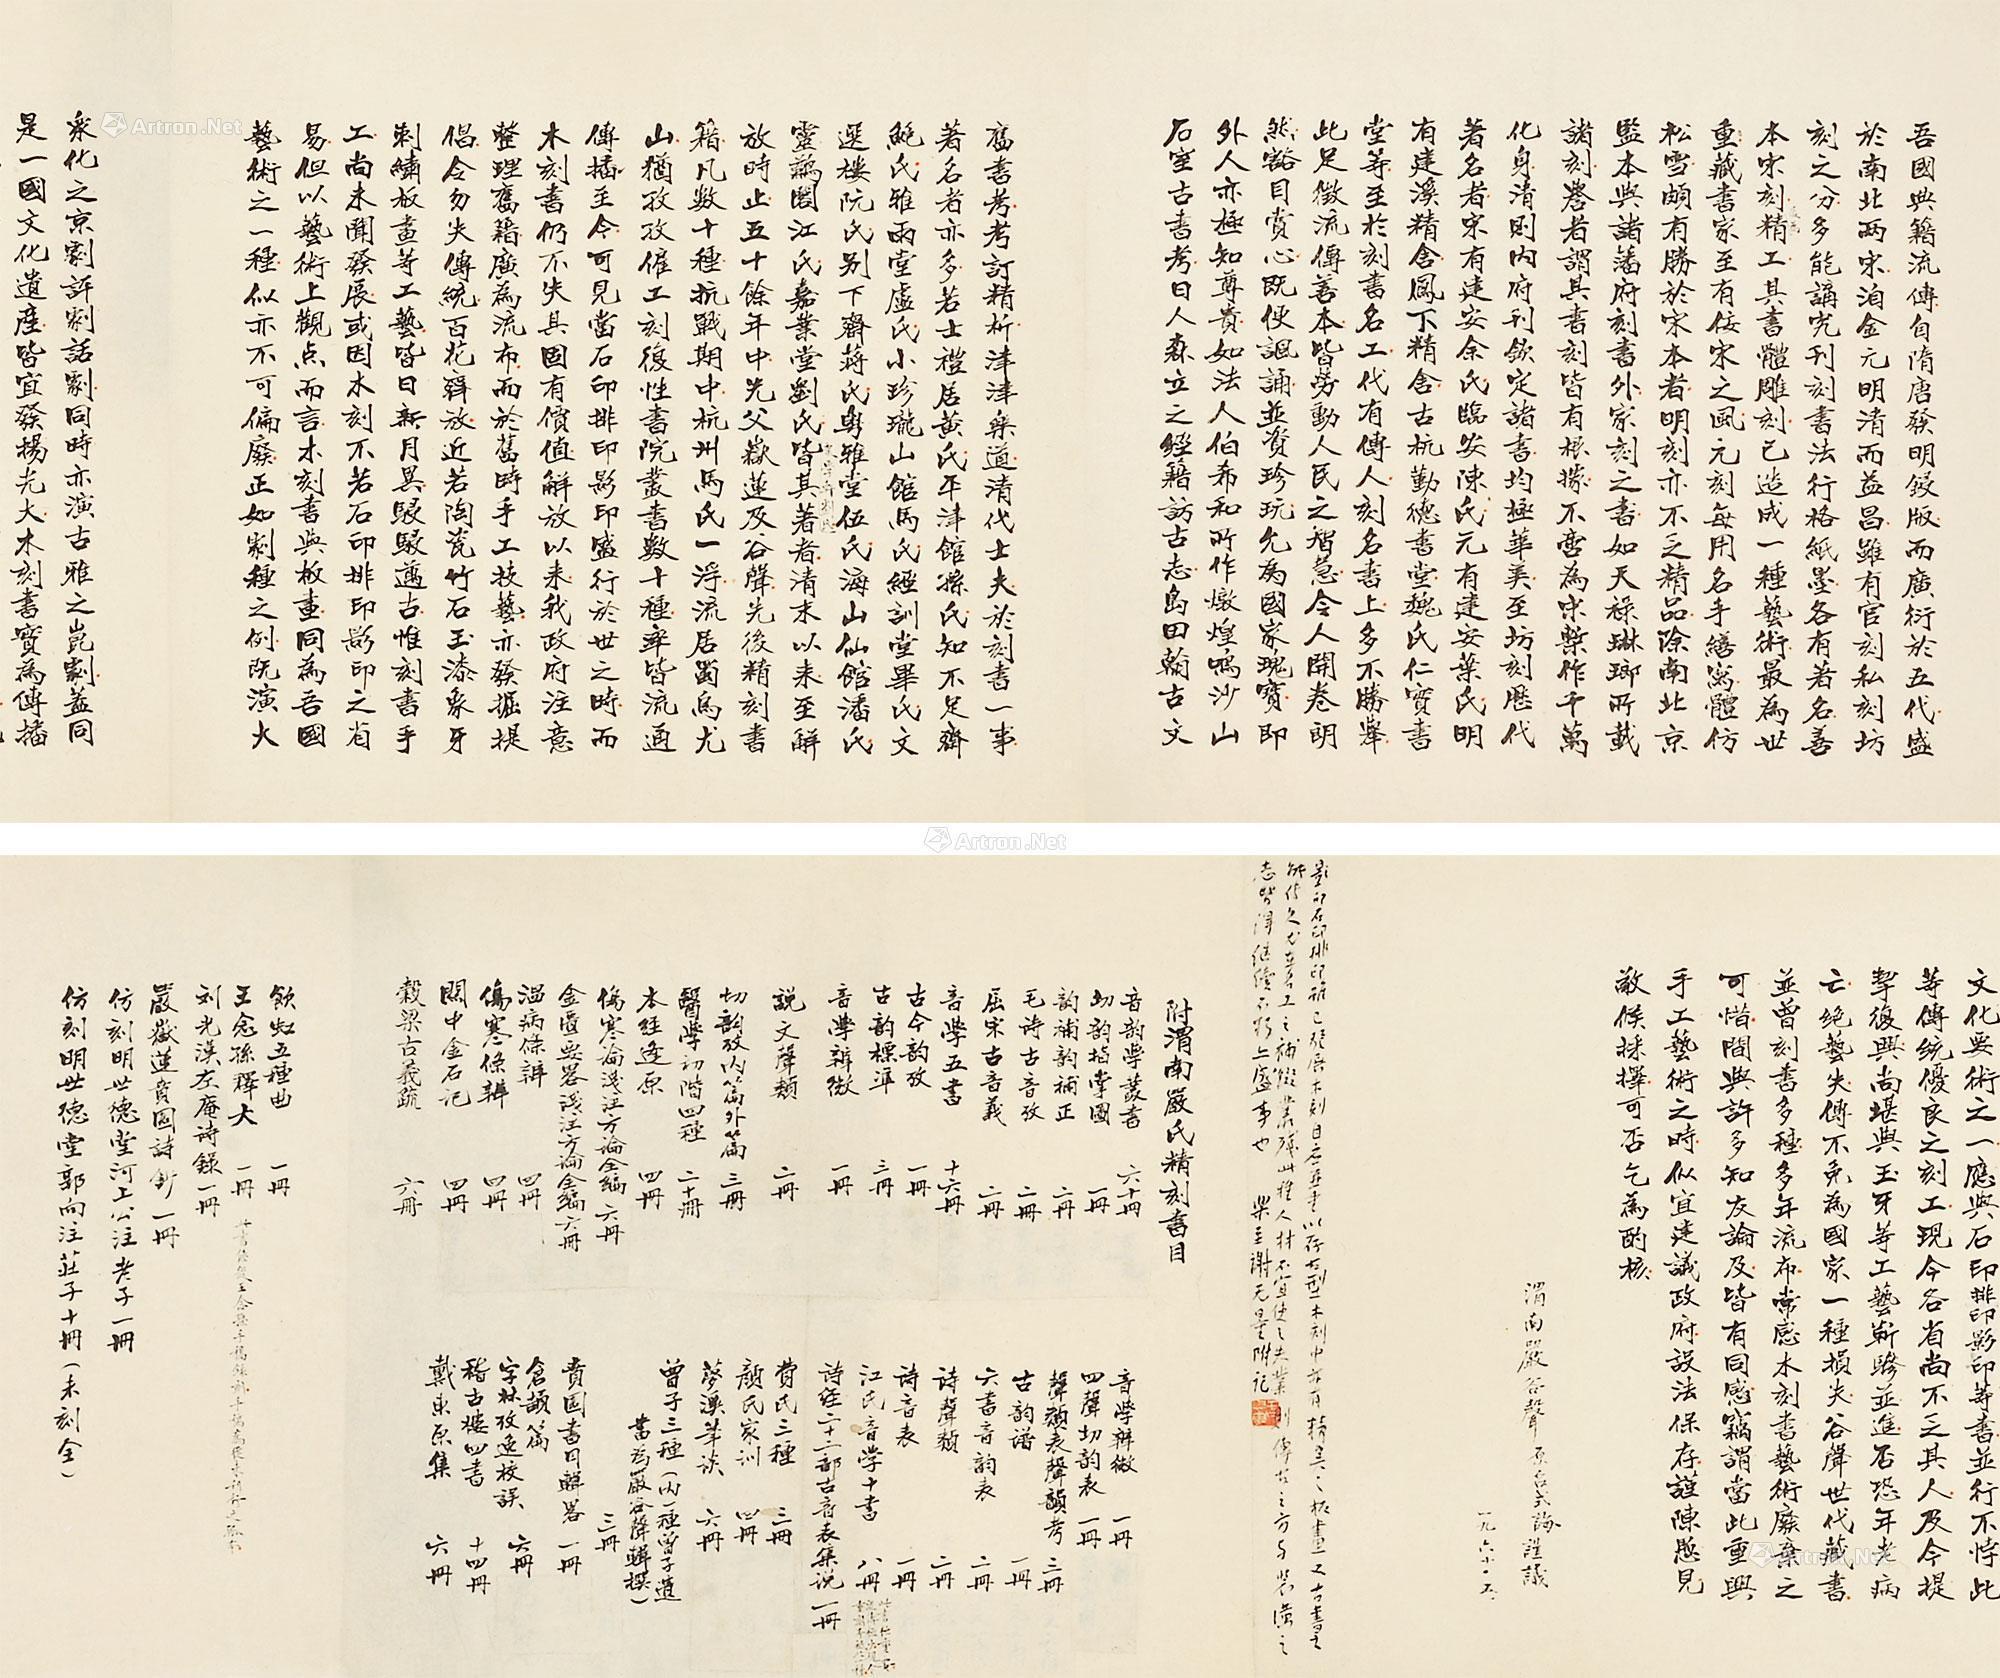 吾國典籍流傳自隋唐發明鋟版而廣衍於五代盛
於南北兩宋洎金元明清而益昌雖有官刻私刻坊
刻之分多能講究刊刻書法行格紙墨各有著名善
本宋刻精工其書體雕刻已造成一種藝術最為世
重藏書家至有佞宋之風元刻每用名手繕寫體仿
松雪頗有勝於宋本者明刻亦不乏精品除南北京
監本與諸藩府刻書外家刻之書如天祿琳瑯所載
諸刻譽者謂其書刻皆有根據不啻為宋槧作千萬
化身清則內府刊欽定諸書均極華美至坊刻歷代
著名者宋有建安余氏臨安陳氏元有建安葉氏明
有建溪精舍鳳下精舍古杭勤德書堂魏氏仁實書
堂等至於刻書名工代有傳人刻名書上多不勝舉
此足徵流傳善本皆勞動人民之智慧令人開卷朗
然豁目賞心既便諷誦並資珍玩允為國家瑰寶即
外人亦極知尊貴如法人伯希和所作燉煌鳴沙山
石室古書考日人森立之經籍訪古志島田翰古文
舊書考考訂精析津津樂道清代士夫於刻書一事
著名者亦多若士禮居黃氏平津館孫氏知不足齋
鮑氏雅雨堂盧氏小玲瓏山館馬氏經訓堂畢氏文
選樓阮氏別下齋蔣氏粵雅堂伍氏海山仙館潘氏
靈鶼閣江氏嘉業堂劉氏皆其著者清末以來至解
放時止五十餘年中先父嶽蓮及谷聲先後精刻書
籍凡數十種抗戰期中杭州馬氏一浮流居蜀烏尤
山猶孜孜催工刻復性書院叢書數十種率皆流通
傳播至今可見當石印排印影印盛行於世之時而
木刻書仍不失其固有價值解放以來我政府注意
整理舊籍廣為流布而於舊時手工技藝亦發掘提
倡令勿失傳統百花齊放近若陶瓷竹石玉漆象牙
刺繡板畫等工藝皆日新月異駸駸邁古惟刻書手
工尚未聞發展或因木刻不若石印排印影印之省
易但以藝術上觀点而言木刻書與板畫同為吾國
藝術之一種似亦不可偏廢正如劇種之例既演大
眾化之京劇評劇話劇同時亦演古雅之崑劇蓋同
是一國文化遺產皆宜發揚光大木刻書實為傳播
文化要術之一應與石印排印影印等書並行不悖此
等傳統優良之刻工現今各省尚不乏其人及今提
挈復興尚堪與玉牙等工藝斬驂並進否恐年老病
亡絕藝失傳不免為國家一種損失谷聲世代藏書
並曾刻書多種多年流布常感木刻書藝術廢棄之
可惜間與許多知友論及皆有同感竊謂當此重興
手工藝術之時似宜建議政府設法保存謹陳愚見
敬候採擇可否乞為酌核
渭南嚴谷聲
一九六十·五
附渭南嚴氏精刻書目
音韵學叢書 六十四
切韵指掌圖 一冊
韵補韵補正 二冊
毛詩古音攷 二冊
屈宋古音義 二冊
音學五書 十六冊
古今韵攷 一冊
古韵標準 三冊
音學辨微 一冊
說文聲類 二冊
切韵攷內篇外篇 三冊
醫學初階四種 二十冊
本經逢原 四冊
傷寒論淺注方論合編 六冊
金匱要畧淺注方論合編 六冊
溫病條辨 四冊
傷寒條辨 四冊
關中金石記 四冊
穀梁古義疏 六冊
音學辨微 一冊
四聲切韵表 一冊
聲類表聲韻考 三冊
古韵譜 一冊
六書音韵表 二冊
詩聲類 二冊
詩音表 一冊
江氏音學十書 八冊
詩經二十二部古音表集說 一冊
費氏三種 三冊
顏氏家訓 四冊
夢溪筆談 六冊
曾子三種(內一種曾子遺
書為嚴谷聲輯撰) 三冊
賁園書目輯畧 一冊
倉頡篇
字林攷逸校誤 六冊
稽古樓四書 十四冊
戴東原集 六冊
飲虹五種曲 一冊
王念孫釋大 一冊
刘光漢左庵詩錄 一冊
嚴嶽蓮賁園詩鈔 一冊
仿刻明世德堂河上公注老子 一冊
仿刻明世德堂郭向注莊子十冊(未刻全)